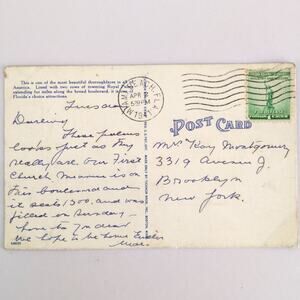 This is one of the most beautiful thoroughfares in all
America. Lined with two rows of towering Royal
extending for miles along the broad boulevard, it is
Florida's choice attractions.
MIAMI BEACH, FLA.
APR 2
PM
1941
POST CARD
Tuesday
Darling
These palms
look as just as they
really are. our First
Church Miami is on
this boulevard and
it seats 1300, and was
filled on Sunday –
love to
We hope to be home Easter
Mrs Ray Montgomery
3319 Avenue J.
Brooklyn
New York.